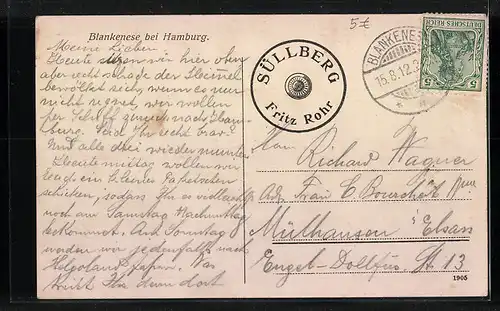 5€
Blankenese bei Hamburg.
Meine Lieben
Heute wir hier oben
aber recht schade der Himmel
bewölkt sich, wenn es nur
nicht regnet, wir wollen
per Schiff zurück nach Ham-
burg. Seid Ihr recht brav?
Und alle drei wieder munter
Heute mittag wollen wir
Euch ein kleines Paketchen
schicken, sodass Ihr es vielleicht
noch am Samstag Nachmittag
bekommt. Am Sonntag
werden wir jedenfalls nach
Helgoland fahren. Was
dort
SÜLLBERG
Fritz Rohr
BLANKENESE
15.8.12.
DEUTSCHES REICH
5 5
Herrn Richard Wagner
Adr. Frau C. Bourscheit
Mülhausen Elsass
Engel-Dollfus St. 13
1905